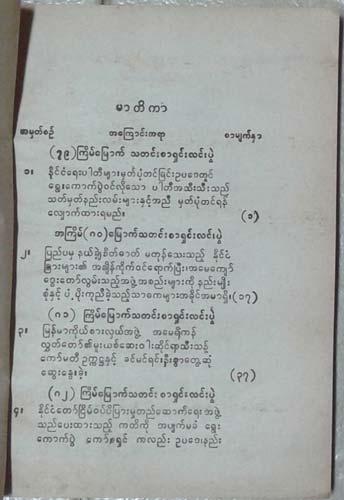 မာတိကာ
အမှတ်စဉ် အကြောင်းအရာ စာမျက်နှာ
(၇၉) ကြိမ်မြောက် သတင်းစာရှင်းလင်းပွဲ
၁။ နိုင်ငံရေးပါတီများမှတ်ပုံတင်ခြင်းဥပဒေတွင်
ရွေးကောက်ပွဲဝင်လိုသော ပါတီအသီးသီးသည်
သတ်မှတ်နည်းလမ်းများနှင့်အညီ မှတ်ပုံတင်ရန်
လျှောက်ထားရမည်။ (၁)
အကြိမ်(၈၀)မြောက်သတင်းစာရှင်းလင်းပွဲ
၂။ ပြည်ပမှ နယ်ချဲ့စိတ်ဓာတ် မတုန်သေးသည့် နိုင်ငံ
ခြားများ၏ အချိန်ကိုက်ဝင်ရောက်ပြီး၊အမေကျော်
ဒွေးတော်လွမ်းသည့်အဖွဲ့အစည်းများကို နည်းမျိုး
စုံနှင့် ပံ့ပိုးကူညီခဲ့သည့်သာဓကများအခိုင်အမာရှိ၊(၁၇)
(၈၁) ကြိမ်မြောက် သတင်းစာရှင်းလင်းပွဲ
၃။ မြန်မာကိုယ်စားလှယ်အဖွဲ့ အမေရိကန်
လွှတ်တော်၏မူးယစ်ဆေးဝါးဆိုင်ရာသီးသန့်
ကော်မတီ ဥက္ကဋ္ဌနှင့် ခင်မင်ရင်းနှီးစွာတွေ့ဆုံ
ဆွေးနွေးခဲ့၊ (၃၇)
(၈၂) ကြိမ်မြောက်သတင်းစာရှင်းလင်းပွဲ
၄။ နိုင်ငံတော်ငြိမ်ဝပ်ပိပြားမှုတည်ဆောက်ရေးအဖွဲ့
သည်ပေးထားသည့် ကတိကို အပျက်မခံ ရွေး
ကောက်ပွဲ ကော်မရှင် ကလည်း ဥပဒေ၊နည်း